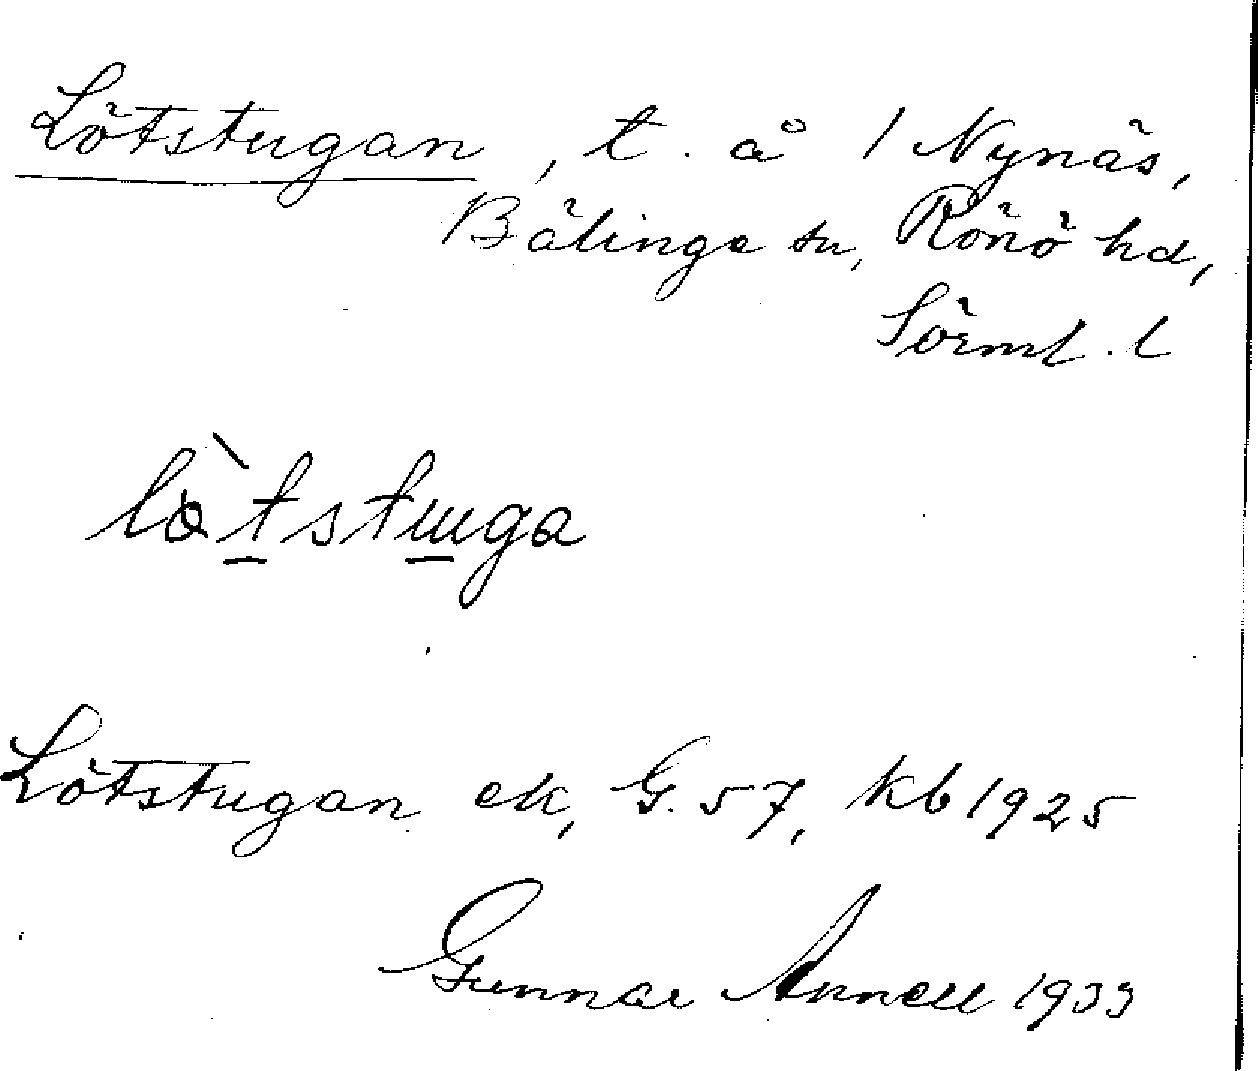 Lötstugan, t. å 1 Nynäs,
Bälinge sn, Rönö hd,
Sörml. l
lò̀tstuga
Lötstugan ek, G. 57, kb 1925
Gunnar Annell 1933